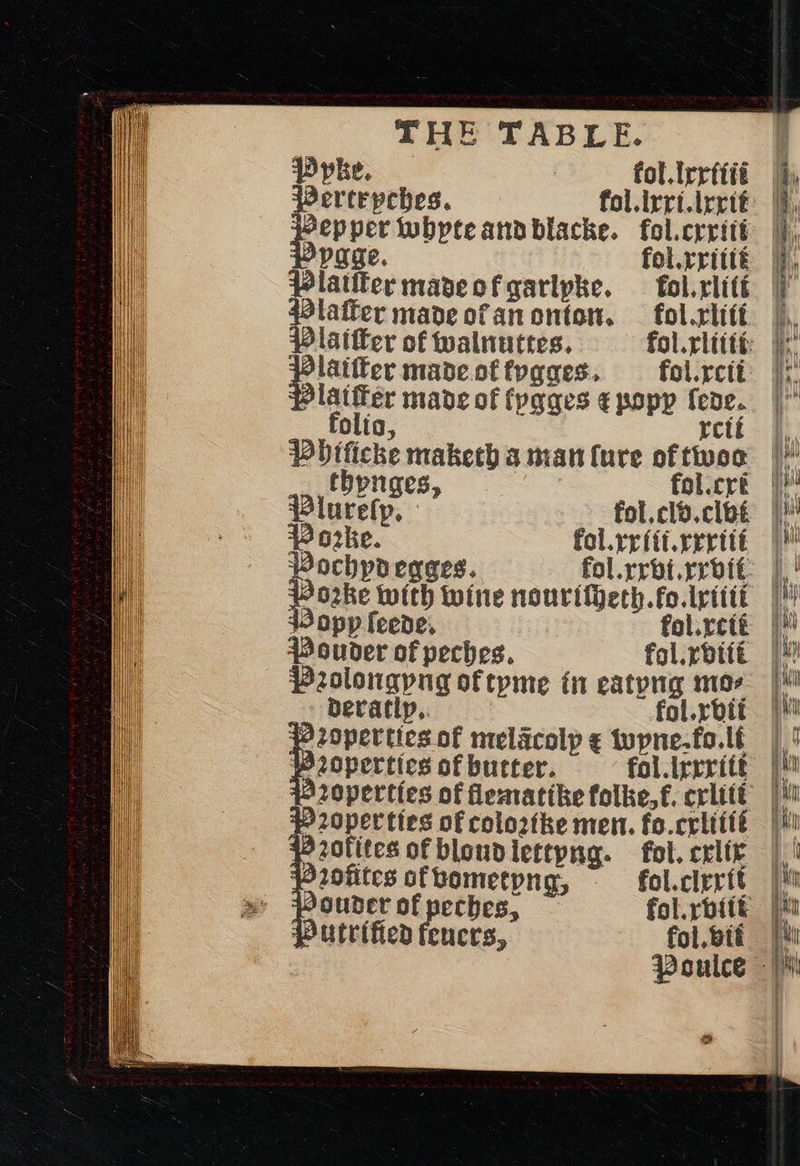 THE TABLE.
Pyke. fol.lxxiiii
Pertryches. fol.lxxi.lxxii
Pepper whyte and blacke. fol.cxxiii
Pygge. fol.xxiiii
Plaister made of garlyke. fol.xliii
Plaster made of an onion. fol.xliii
Plaister of walnuttes. fol.xliiii
Plaister made of fygges. fol.xcii
Plaister made of fygges & popy sede.
folio, xcii
Phisicke maketh a man sure of twoo
thynges, fol.cxi
Pluresy. fol.clv.clvi
Porke. fol.xxiii.xxxiii
Pochyd egges. fol.xxvi.xxvii
Porke with wine nourisheth.fo.lxiiii
Popy seede. fol.xcii
Pouder of peches. fol.xviii
Prolongyng of tyme in eatyng mo⸗
deratly. fol.xvii
Properties of melācoly & wyne.fo.li
Properties of butter. fol.lxxxiii
Properties of flematike folke,f. cxliii
Properties of colorike men. fo.cxliiii
Profites of bloud lettyng. fol. cxlix
Profites of vometyng, fol.clxxii
Pouder of peches, fol.xviii
Putrified feuers, fol.vii
Poulce